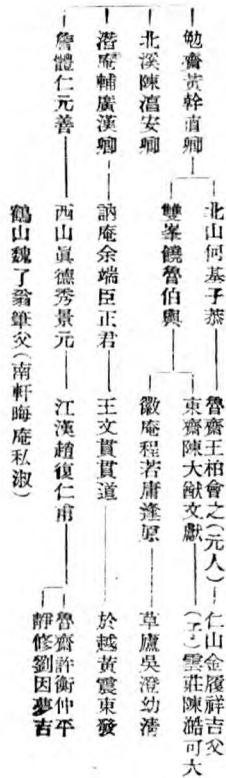 勉齋黃榦直卿
北山何基子恭
魯齋王柏會之(元人)
仁山金履祥吉父
雙峯饒魯伯輿
東齋陳大猷文獻
雲莊陳澔可大
徽庵程若庸逢原
草廬吳澄幼清
北溪陳淳安卿
潛庵輔廣漢卿
訥庵余端臣正君
王文貫貫道
於越黃震東發
詹體仁元善
西山眞德秀景元
江漢趙復仁甫
魯齋許衡仲平
靜修劉因夢吉
鶴山魏了翁華父(南軒晦庵私淑)